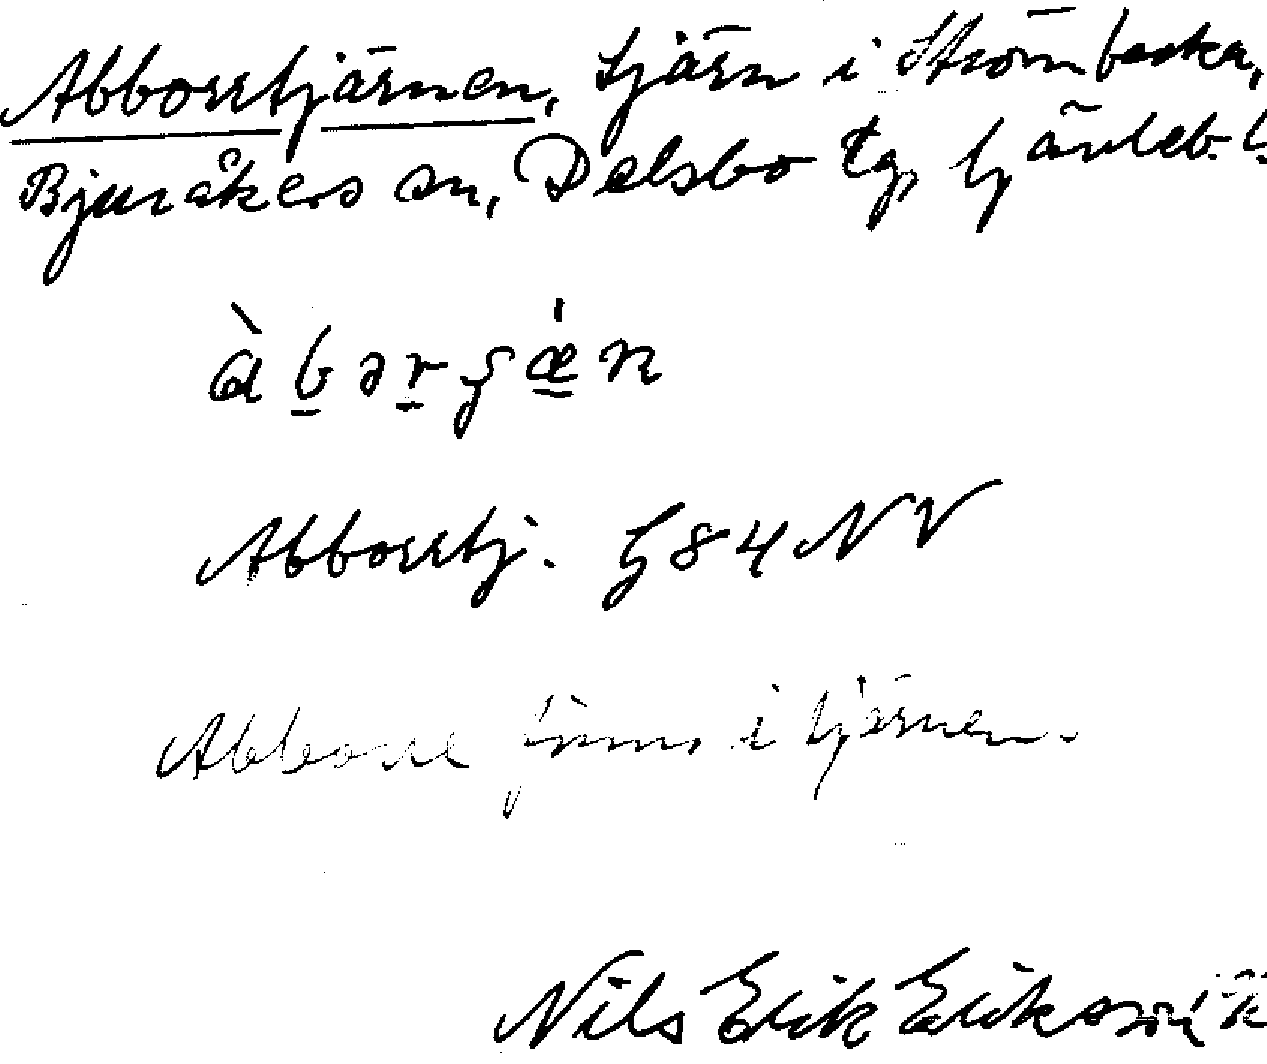 Abborrtjärnen, tjärn i Strömbacka,
Bjuråkers sn, Delsbo tg, Gävleb. l.
àbərʂǽn
Abborrtj. G84 NV
Abborre finns i tjärnen.
Nils Erik Eriksson